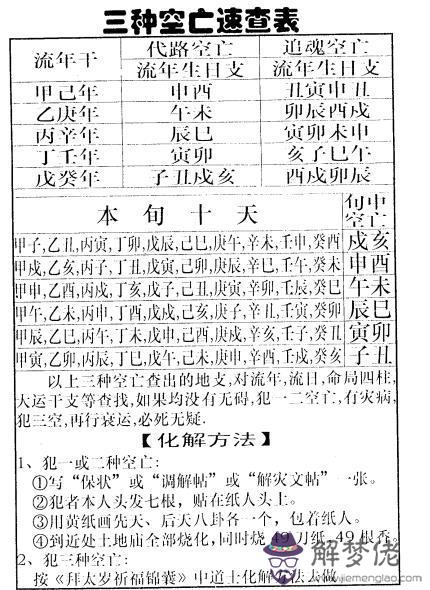 三种空亡速查表
流年干 代路空亡 追魂空亡
流年生日支 流年生日支
甲己年 申酉 丑寅申丑
乙庚年 午未 卯辰酉戍
丙辛年 辰巳 寅卯未申
丁壬年 寅卯 亥子巳午
戊癸年 子丑戍亥 酉戍卯辰
本旬十天 旬中空亡
甲子,乙丑,丙寅,丁卯,戊辰,己巳,庚午,辛未,壬申,癸酉 戍亥
甲戍,乙亥,丙子,丁丑,戊寅,己卯,庚辰,辛巳,壬午,癸未 申酉
甲申,乙酉,丙戍,丁亥,戊子,己丑,庚寅,辛卯,壬辰,癸巳 午未
甲午,乙未,丙申,丁酉,戊戍,己亥,庚子,辛丑,壬寅,癸卯 辰巳
甲辰,乙巳,丙午,丁未,戊申,己酉,庚戍,辛亥,壬子,癸丑 寅卯
甲寅,乙卯,丙辰,丁巳,戊午,己未,庚申,辛酉,壬戍,癸亥 子丑
以上三种空亡查出的地支,对流年,流日,命局四柱,
大运干支等查找,如果均没有无碍,犯一二空亡,有灾病,
犯三空,再行衰运,必死无疑.
【化解方法】
1、犯一或二种空亡:
①写“保状”或“调解帖”或“解灾文帖”一张。
②犯者本人头发七根,贴在纸人头上。
③用黄纸画先天、后天八卦各一个,包着纸人。
④到近处土地庙全部烧化,同时烧49刀纸,49根香。
2、犯三种空亡:
按《拜太岁祈福锦囊》中道士化解方法上做
解梦佬
jiemenglao.com